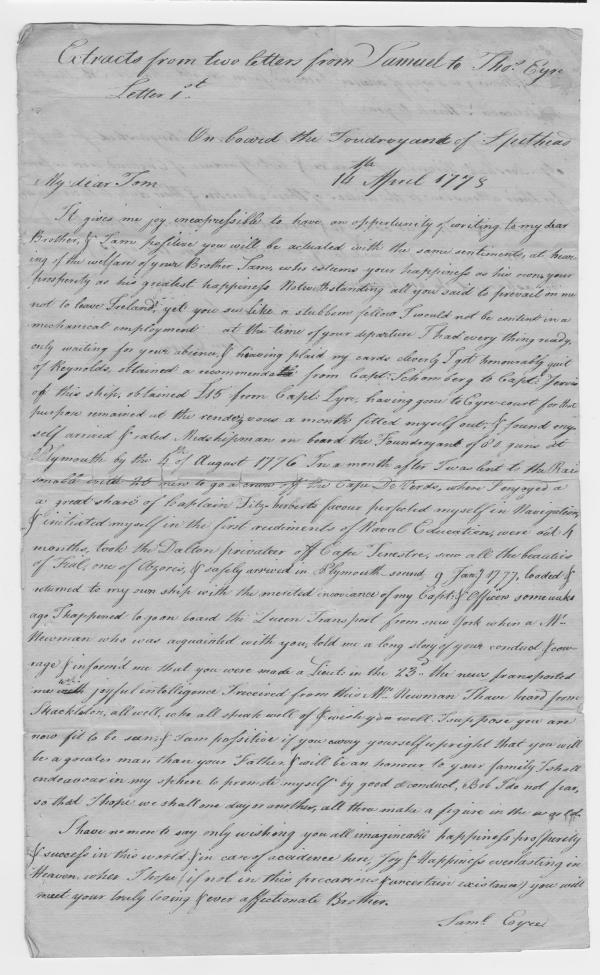 Extracts from two letters from Samuel to Thos. Eyre
Letter 1st
On board the Foudroyant of Spithead
14th April 1778
My dear Tom
It gives me joy inexpressible to have an opportunity of writing to my dear
Brother, & I am positive you will be actuated with the same sentiments, at hear-
ing of the welfare of your Brother Sam, who esteems your happiness as his own, your
prosperity as his greatest happiness Notwithstanding all you said to prevail on me
not to leave Ireland, yet you see like a stubborn fellow I would not be content in a
mechanical employment at the time of your departure I had every thing ready,
only waiting for your absence, & having plaid my cards cleverly I got honourably quit
of Reynolds, obtained a recommendatn from Captn. Schomberg to Captn. Jarvis
of this ship, obtained £45 from Captn. Eyre, having gone to Eyre-court for that
purpose remained at the rendezvous a month fitted myself out, & found my-
self arrived & rated Midshipman on board the Foudroyant of 84 guns at
Plymouth by the 4th of August 1776 In a month after I was lent to the
to go a cruise off the Cape De Verds, where I enjoyed a
a great share of Captain Fitzherberts favour perfected myself in Navigation,
& initiated myself in the first rudiments of Naval Education, were out 4
months, took the Dalton privateer off Cape Finestre, saw all the beauties
of Fial, one of Azores, & safely arrived in Plymouth sound 9 Jany 1777, loaded &
returned to my own ship with the merited of my Captn. & Officers some weeks
ago I happened to go on board the Queen Transport from new York when a Mr.
Newman who was acquainted with you, told me a long story of your conduct & cou-
rage & inform'd me that you were made a Lieutt in the 23d. the news transported
me with joyful intelligence I received from this Mr. Newman I have heard from
Shackleton, all well, who all speak well of & wish you well. I suppose you are
now fit to be seen, & I am possitive if you carry yourself upright that you will
be a greater man than your Father, & will be an honour to your family I shall
endeavour in my sphere to promote myself by good conduct, Bob I do not fear,
so that I hope we shall one day or another, all three make a figure in the
I have no more to say only wishing you all imagineable happiness prosperity
& success in this world & in case of accidence here, Joy & Happiness everlasting in
Heaven, wher I hope (if not in this precarious & uncertain existance) you will
meet your truly loving & ever affectionate Brother.
Saml. Eyre